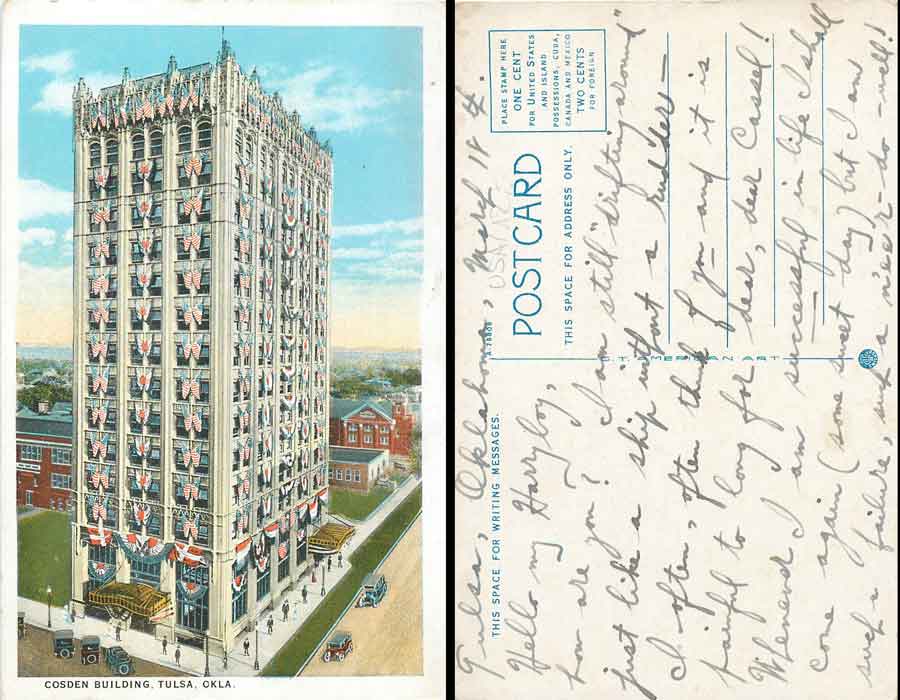 COSDEN BUILDING, TULSA, OKLA.
PLACE STAMP HERE
ONE CENT
FOR UNITED STATES
AND ISLAND
POSSESSIONS, CUBA,
CANADA AND MEXICO
TWO CENTS
FOR FOREIGN
POST CARD
THIS SPACE FOR ADDRESS ONLY.
THIS SPACE FOR WRITING MESSAGES.
C.T. AMERICAN ART
Tulsa, Oklahoma, 18
Hello my Harry boy,
how are you? I am still "drifting around"
just like a ship without a rudder —
I often, often think of you and it is
painful to long for dear, dear Cassel!
Whenever I am successful in life I shall
come again (some sweet day) but I am
such a failure, such a ne'er-do-well!